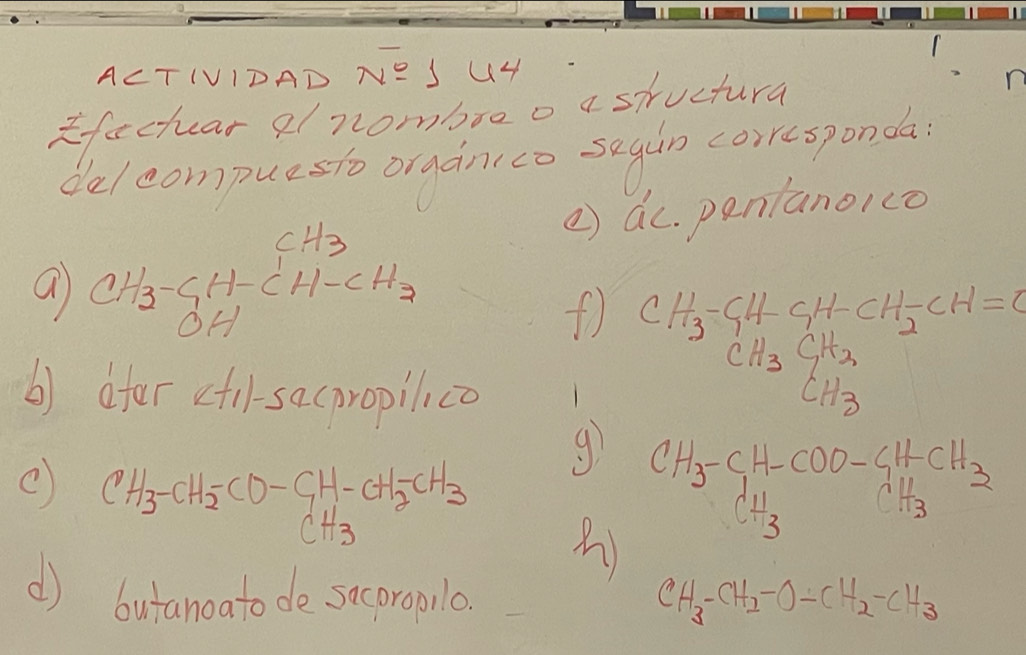 ACTIVIDAD Nº 1 U4
Efectuar el nombre o estructura
del compuesto orgánico según corresponda:
a) CH3-CH-CH-CH3
CH3
OH
b) éter etil-secpropílico
c) CH3-CH2-CO-CH-CH2-CH3
CH3
d) butanoato de secpropilo.
e) ác. pentanoico
f) CH3-CH-CH-CH2-CH=C
CH3 CH2
CH3
g) CH3-CH-COO-CH-CH3
CH3 CH3
h)
CH3-CH2-O-CH2-CH3